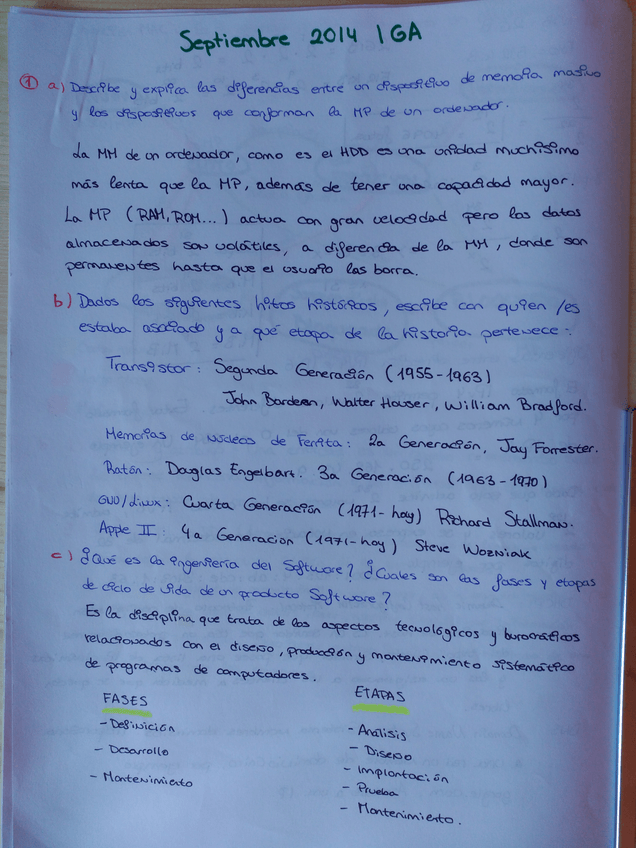 Septiembre 2014 1GA
① a) Describe y explica las diferencias entre un dispositivo de memoria masiva
y los dispositivos que conforman la MP de un ordenador.
La MM de un ordenador, como es el HDD es una unidad muchísimo
más lenta que la MP, además de tener una capacidad mayor.
La MP (RAM, ROM...) actua con gran velocidad pero los datos
almacenados son volátiles, a diferencia de la MM, donde son
permanentes hasta que el usuario las borra.
b) Dados los siguientes hitos históricos, escribe con quien/es
estaba asociado y a qué etapa de la historia pertenece:
Transistor: Segunda Generación (1955-1963)
John Bardeen, Walter Houser, William Bradford.
Memorias de Núcleos de Ferrita: 2a Generación, Jay Forrester.
Ratón: Douglas Engelbart. 3a Generación (1963-1970)
GNU/Linux: Cuarta Generación (1971-hoy) Richard Stallman.
Apple II: 4a Generacion (1971-hoy) Steve Wozniak
c) ¿Qué es la ingeniería del Software? ¿Cuales son las fases y etapas
de ciclo de vida de un producto Software?
Es la disciplina que trata de los aspectos tecnológicos y burocráticos
relacionados con el diseño, producción y mantenimiento sistemático
de programas de computadores.
FASES
- Definición
- Desarrollo
- Mantenimiento
ETAPAS
- Análisis
- Diseño
- Implantación
- Prueba
- Mantenimiento.